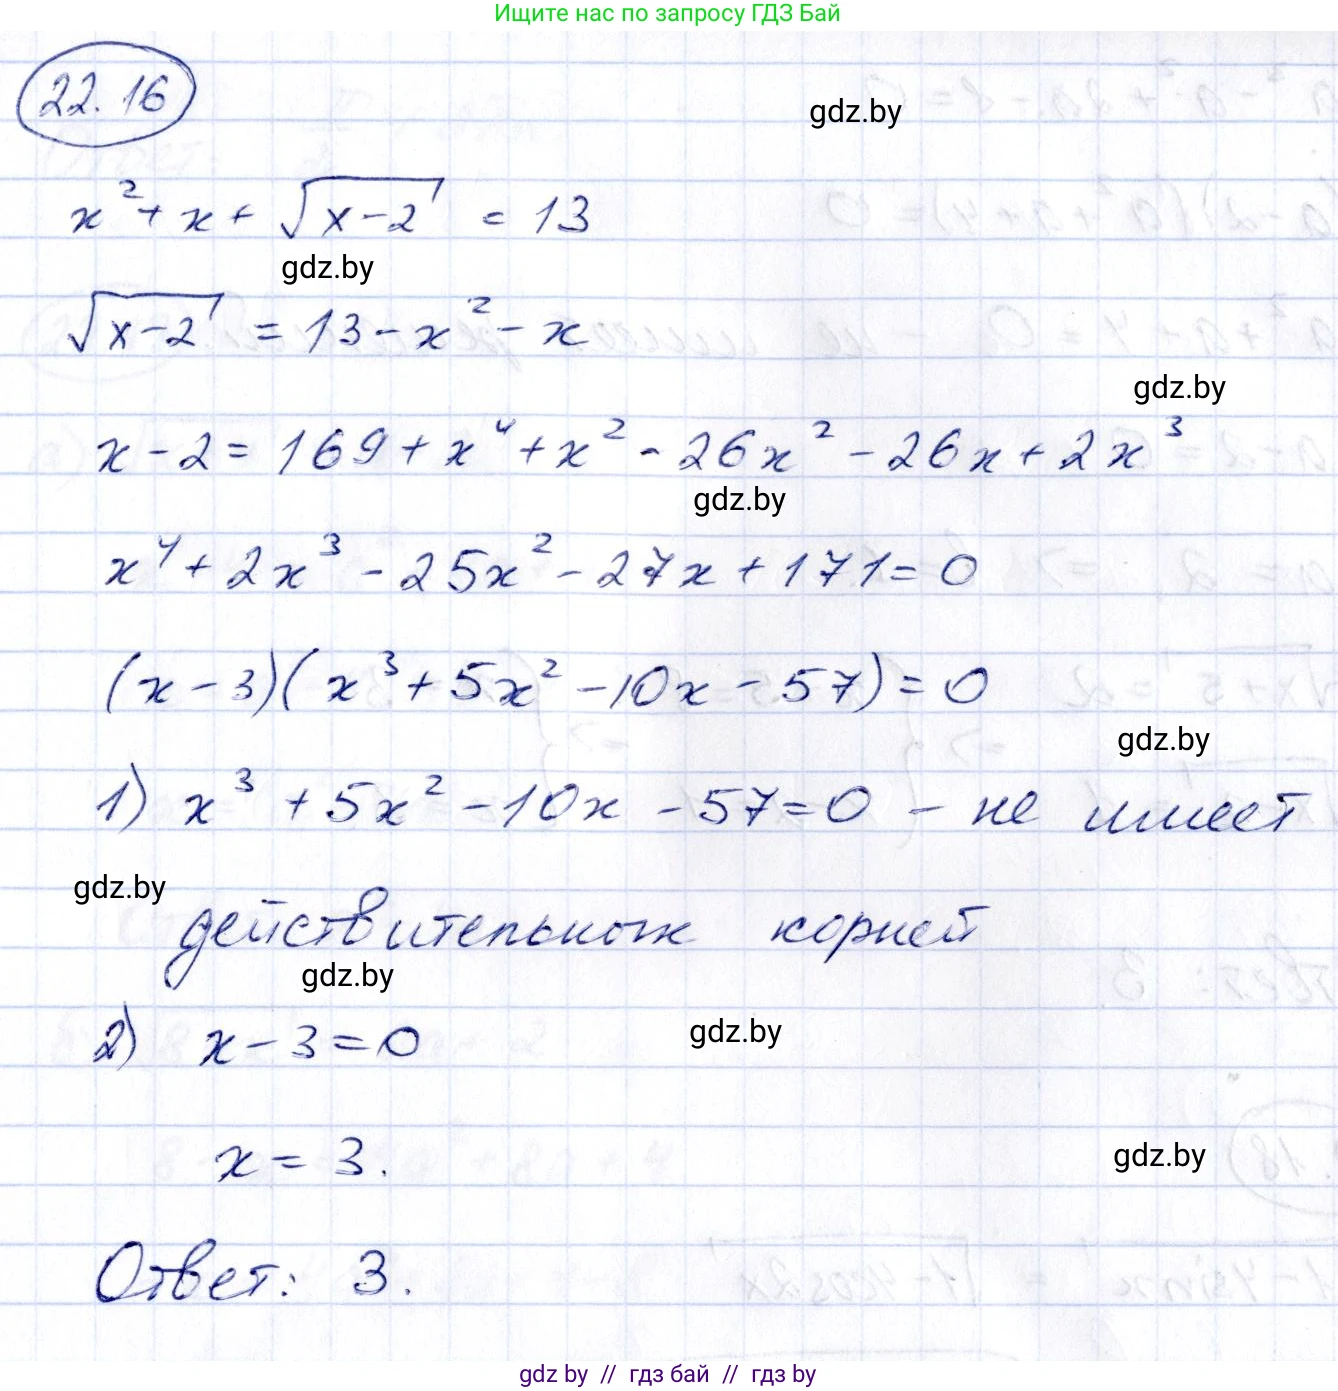 Ищите нас по запросу ГДЗ Бай
22.16
gdz.by
x² + x + √(x-2) = 13
gdz.by
√(x-2) = 13 - x² - x
gdz.by
x - 2 = 169 + x⁴ + x² - 26x² - 26x + 2x³
gdz.by
x⁴ + 2x³ - 25x² - 27x + 171 = 0
(x - 3)(x³ + 5x² - 10x - 57) = 0
gdz.by
1) x³ + 5x² - 10x - 57 = 0 - не имеет
gdz.by
действительных корней
gdz.by
2) x - 3 = 0
gdz.by
x = 3.
gdz.by
Ответ: 3.
gdz by // гдз бай // гдз by